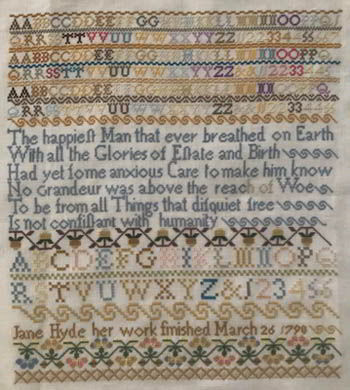 AABBCCDDEE GG HHIIKKLLMMNNOOPP
QRRSSTTVVUUWWXXYYZZ 3345
AABBCCDDEE GG HHIIKKLLMMNNOOPPQ
QRRSSTTVVUUWWXXYYZZ 12233455
AABBCCDDEE GG
UU ZZ 33
The happieſt Man that ever breathed on Earth
With all the Glories of Eſtate and Birth
Had yet ſome anxious Care to make him know
No Grandeur was above the reach of Woe
To be from all Things that diſquiet free
Is not conſiſtant with humanity
ABCDEFGHIKLMNOPQ
RSTVUWXYZ&123455
Jane Hyde her work finished March 26 1790